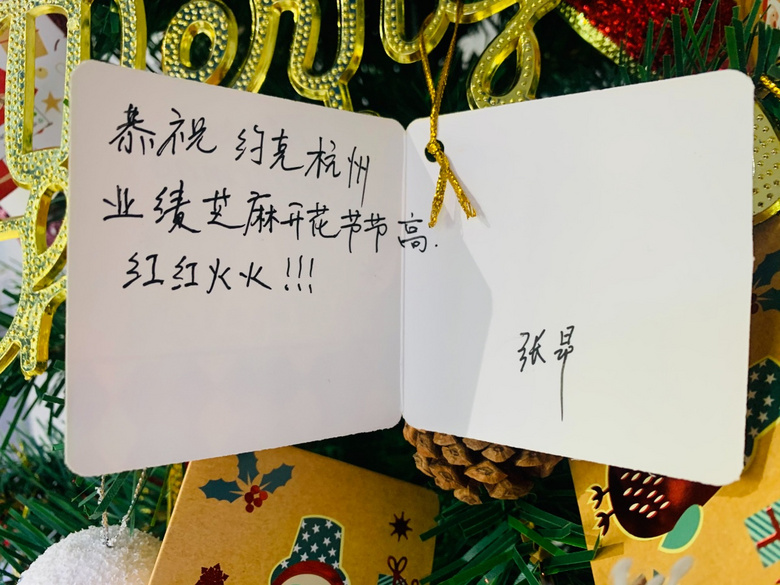 恭祝 约克杭州
业绩芝麻开花节节高.
红红火火!!!
张昂